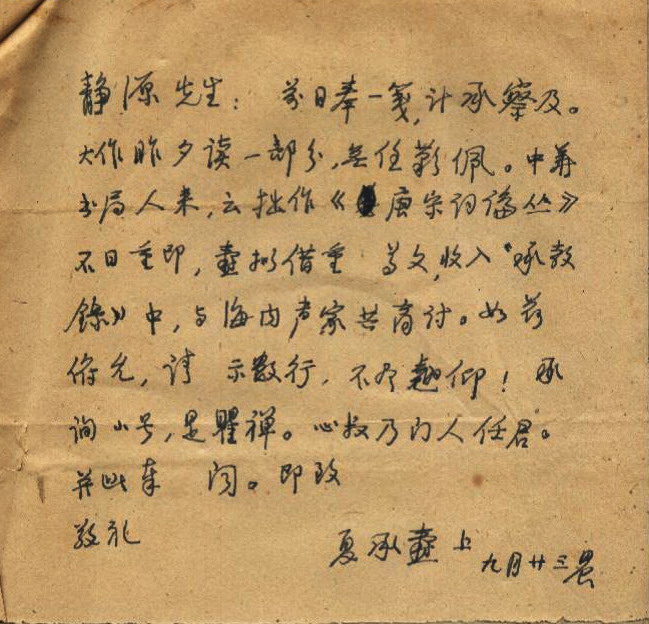 静源先生：前日奉一笺，计承察及。
大作昨夕读一部分，无任歆佩。中华
书局人来，云拙作《唐宋词论丛》
不日重印，焘拟借重 尊文，收入“承教
录》中，与海内声家共商讨。如荷
俯允，请 示数行，不尽翘仰！承
询小号，是瞿禅。心叔乃门人任君。
并此奉 闻。即致
敬礼
夏承焘上 九月廿三晨